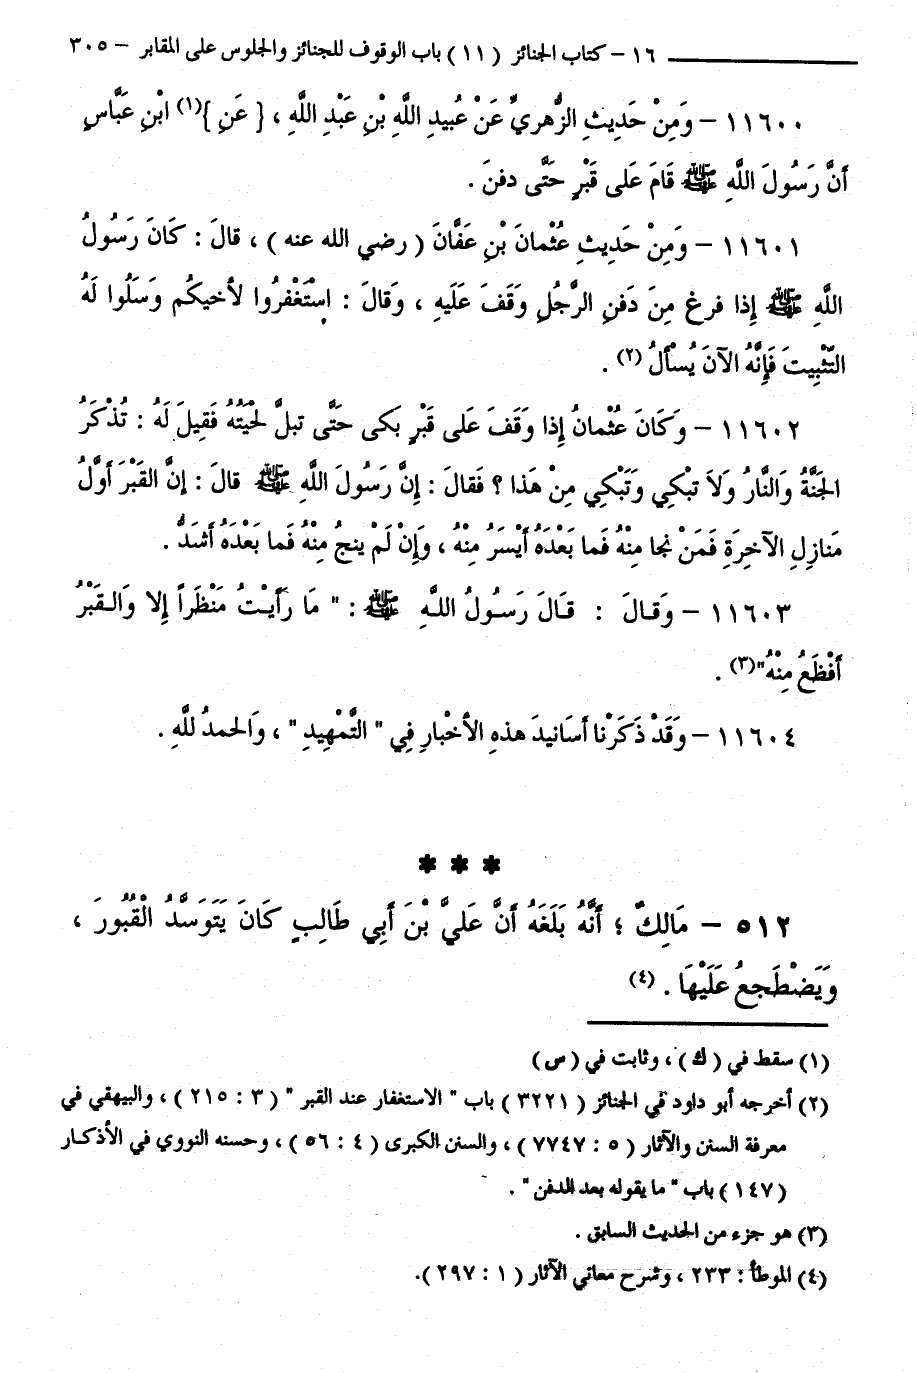 ١٦ – كتاب الجنائز ( ١١ ) باب الوقوف للجنائز والجلوس على المقابر – ٣٠٥
١١٦٠٠ – وَمِنْ حَدِيثِ الزُّهريِّ عَنْ عُبيدِ اللَّهِ بْنِ عَبْدِ اللَّهِ ، { عَنِ }(١) ابْنِ عَبَّاسٍ
أنَّ رَسُولَ اللَّهِ ﷺ قَامَ عَلى قَبْرٍ حَتَّى دفنَ .
١١٦٠١ – وَمِنْ حَديثِ عُثْمانَ بْنِ عَفَّانَ ( رضي الله عنه ) ، قالَ : كَانَ رَسُولُ
اللَّهِ ﷺ إِذا فرغ مِنَ دَفنِ الرَّجُلِ وَقَفَ عَلَيهِ ، وَقالَ : اسْتَغْفِرُوا لأخيكُم وَسَلُوا لَهُ
التّثْبِيتَ فَإِنَّهُ الآنَ يُسْألُ (٢) .
١١٦٠٢ – وَكَانَ عُثْمانُ إِذا وَقَفَ عَلى قَبْرٍ بَكى حَتَّى تبلَّ لحْيَتُهُ فَقِيلَ لَهُ : تُذْكَرُ
الجَنَّةُ وَالنَّارُ وَلاَ تبْكِي وَتَبْكِي مِنْ هَذا ؟ فَقالَ : إِنَّ رَسُولَ اللَّهِ ﷺ قالَ : إنَّ القَبْرَ أوَّلُ
مَنازِلِ الآخِرَةِ فَمَنْ نجَا مِنْهُ فَما بَعْدَهُ أيْسَرُ مِنْهُ ، وَإِنْ لَمْ ينجُ مِنْهُ فَما بَعْدَهُ أشَدُّ .
١١٦٠٣ – وَقَالَ : قَالَ رَسُولُ اللَّهِ ﷺ : " مَا رَأَيْتُ مَنْظَراً إِلا وَالقَبْرُ
أفْظَعُ مِنْهُ"(٣) .
١١٦٠٤ – وَقَدْ ذَكَرْنا أسَانيدَ هذهِ الأخْبارِ فِي " التَّمْهِيدِ " ، وَالحمدُ للَّهِ .
* * *
٥١٢ – مَالِكٌ ؛ أَنَّهُ بَلَغَهُ أَنَّ عَليَّ بْنَ أَبِي طَالِبٍ كَانَ يَتَوَسَّدُ الْقُبُورَ ،
وَيَضْطَجعُ عَلَيْهَا . (٤)
(١) سقط في ( ك ) ، وثابت في ( ص )
(٢) أخرجه أبو داود في الجنائز ( ٣٢٢١ ) باب " الاستغفار عند القبر " ( ٣ : ٢١٥ ) ، والبيهقي في
معرفة السنن والآثار ( ٥ : ٧٧٤٧ ) ، والسنن الكبرى ( ٤ : ٥٦ ) ، وحسنه النووي في الأذكار
( ١٤٧ ) باب " ما يقوله بعد الدفن " .
(٣) هو جزء من الحديث السابق .
(٤) الموطأ : ٢٣٣ ، وشرح معاني الآثار ( ١ : ٢٩٧ ).